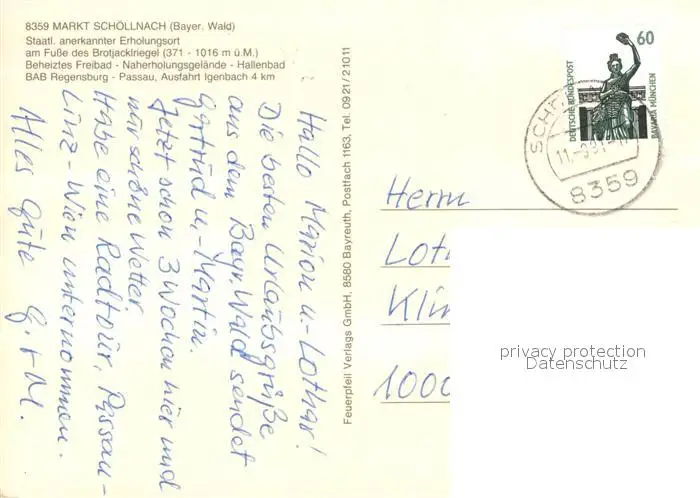 8359 MARKT SCHÖLLNACH (Bayer. Wald)
Staatl. anerkannter Erholungsort
am Fuße des Brotjacklriegel (371 - 1016 m ü.M.)
Beheiztes Freibad - Naherholungsgelände - Hallenbad
BAB Regensburg - Passau, Ausfahrt Igenbach 4 km
Hallo Marion u. Lothar!
Die besten Urlaubsgrüße
aus dem Bayr. Wald sendet
Gertrud u. Martin.
Jetzt schon 3 Wochen hier und
nur schöne Wetter.
Habe eine Radtour, Passau-
Linz-Wien unternommen.
Alles Gute G. + M.
Feuerpfeil Verlags GmbH, 8580 Bayreuth, Postfach 1163, Tel. 0921/21011
60
DEUTSCHE BUNDESPOST
BAVARIA MÜNCHEN
8359
Herrn
Loth
Klin
1000
privacy protection
Datenschutz